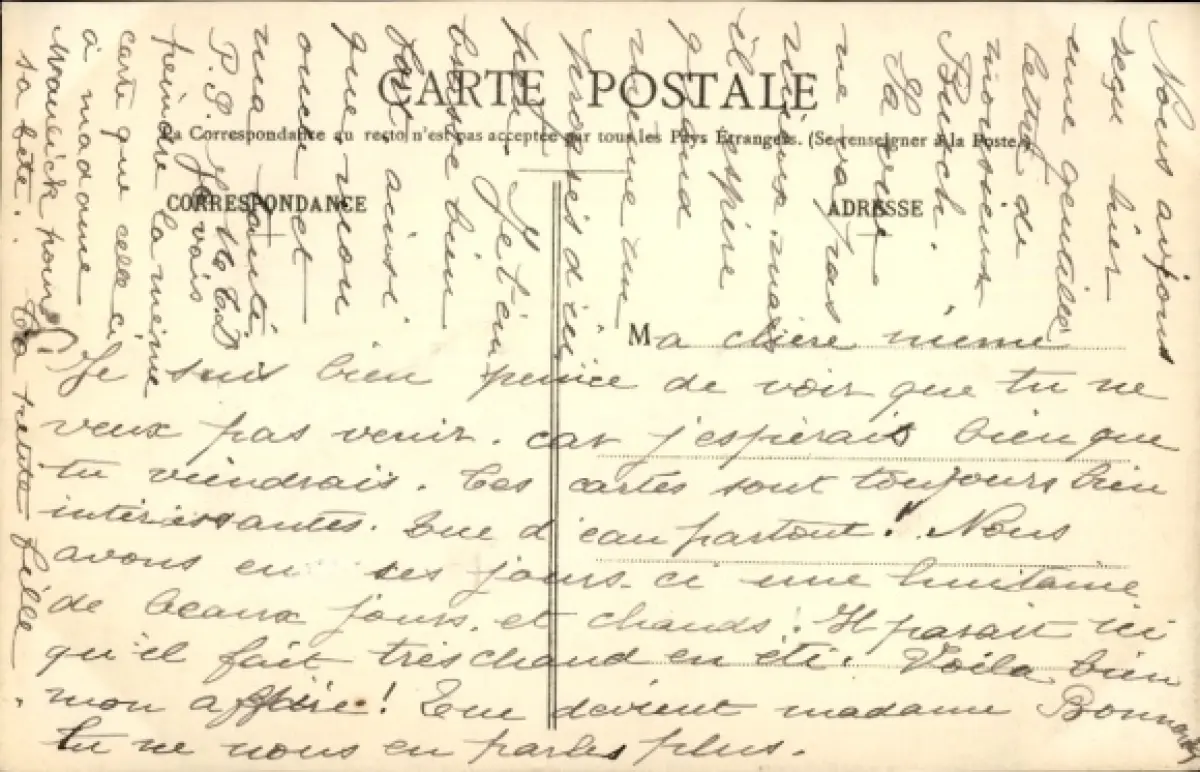 CARTE POSTALE
La Correspondance au recto n'est pas acceptée par tous les Pays Étrangers. (Se renseigner à la Poste.)
CORRESPONDANCE
ADRESSE
Ma chère mémé
Je suis bien peinée de voir que tu ne
veux pas venir. car j'espérais bien que
tu viendrais. Tes cartes sont toujours bien
intéressantes. Que d'eau partout! Nous
avons eu ces jours-ci une huitaine
de beaux jours et chauds. Il parait ici
qu'il fait très chaud en été. Voilà bien
mon affaire! Que devient madame
tu ne nous en parles plus.
Nous avons
reçu hier
une gentille
lettre de
monsieur
Busch.
Sa
ne va pas
mieux mais
il espère
quand
même un
peu. Je t'em
brasse bien
fort ainsi
que mon
oncle et
ma tante
P.S. Je vais
peindre la même
carte que celle ci
à madame
pour
sa fête.
Ta petite fille